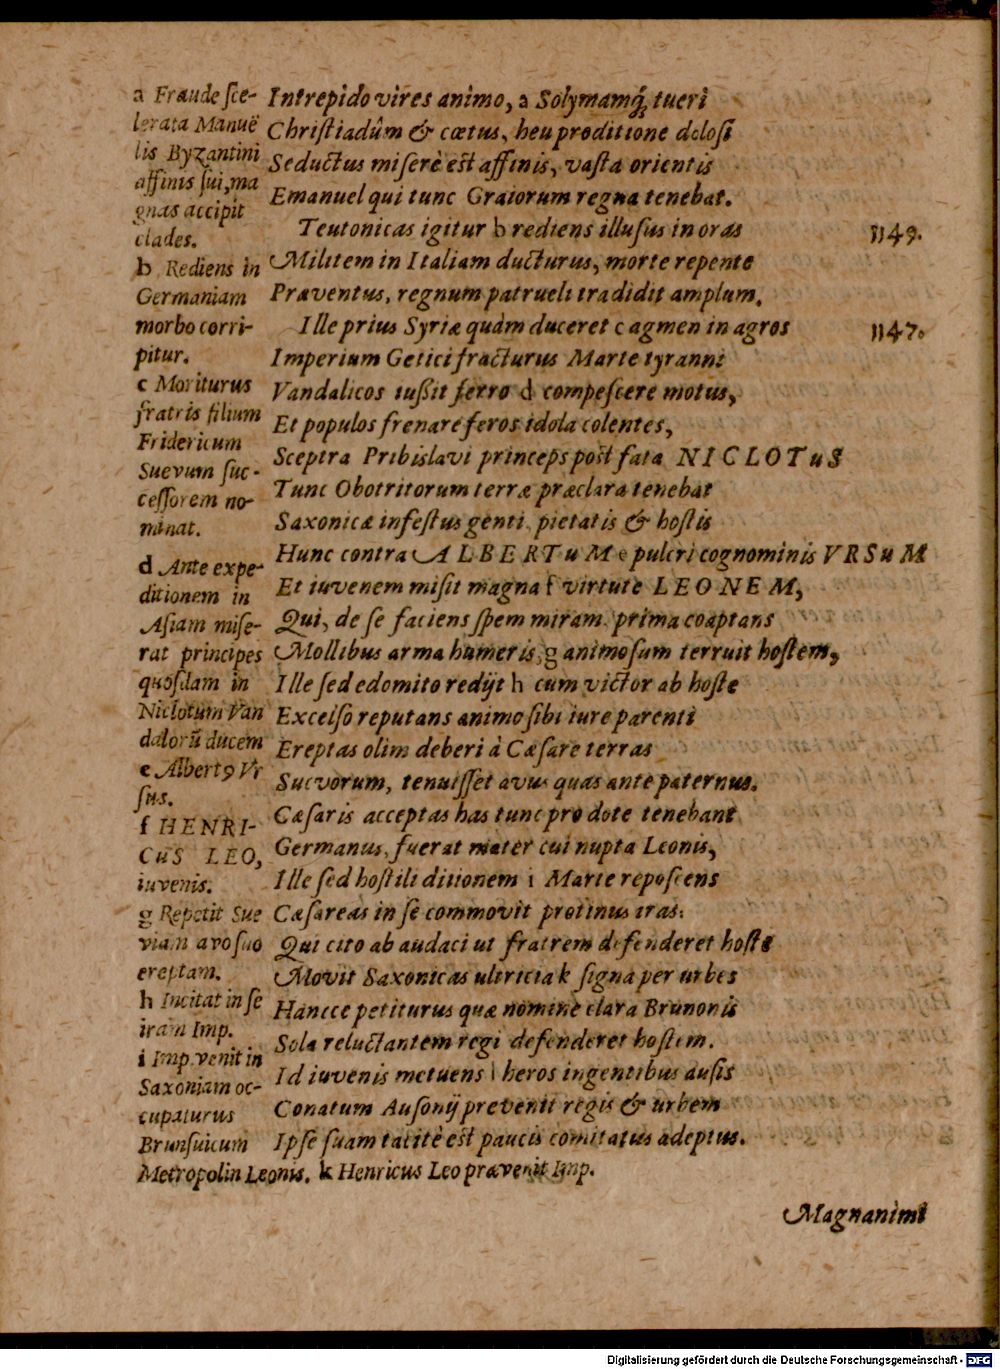 a Fraude sce-
lerata Manuë
lis Byzantini
affinis sui, ma
gnas accipit
clades.
b Rediens in
Germaniam
morbo corri-
pitur.
c Moriturus
fratris filium
Fridericum
Suevum suc-
cessorem no-
minat.
d Ante expe-
ditionem in
Asiam mise-
rat principes
quosdam in
Niclotum Van
dalorū ducem
e Albertꝰ Vr
sus.
f HENRI-
CuS LEO,
iuvenis.
g Repetit Sue
viam avo suo
ereptam.
h Incitat in se
iram Imp.
i Imp. venit in
Saxoniam oc-
cupaturus
Brunsuicum
Metropolin Leonis. k Henricus Leo prævenit Imp.
Intrepido vires animo, a Solymamq; tueri
Christiadûm & cœtus, heu proditione dolosi
Seductus miserè est affinis, vasta orientis
Emanuel qui tunc Graiorum regna tenebat.
Teutonicas igitur b rediens illusus in oras 1149.
Militem in Italiam ducturus, morte repente
Præventus, regnum patrueli tradidit amplum.
Ille prius Syriæ quàm duceret c agmen in agros 1147.
Imperium Getici fracturus Marte tyranni
Vandalicos iußit ferro d compescere motus,
Et populos frenare feros idola colentes,
Sceptra Pribislavi princeps post fata NICLOTuS
Tunc Obotritorum terræ præclara tenebat
Saxonicæ infestus genti pietatis & hostis
Hunc contra ALBERTuM e pulcri cognominis VRSuM
Et iuvenem misit magna f virtute LEONEM,
Qui, de se faciens spem miram prima coaptans
Mollibus arma humeris, g animosum terruit hostem,
Ille sed edomito redijt h cum victor ab hoste
Excelso reputans animo sibi iure parenti
Ereptas olim deberi à Cæsare terras
Suevorum, tenuisset avus quas ante paternus.
Cæsaris acceptas has tunc pro dote tenebant
Germanus, fuerat mater cui nupta Leonis,
Ille sed hostili ditionem i Marte reposcens
Cæsareas in se commovit protinus iras:
Qui cito ab audaci ut fratrem defenderet hoste
Movit Saxonicas ultricia k signa per urbes
Hancce petiturus quæ nomine clara Brunonis
Sola reluctantem regi defenderet hostem.
Id iuvenis metuens l heros ingentibus ausis
Conatum Ausonij prevenit regis & urbem
Ipse suam tacitè est paucis comitatus adeptus.
Magnanimi
Digitalisierung gefördert durch die Deutsche Forschungsgemeinschaft - DFG